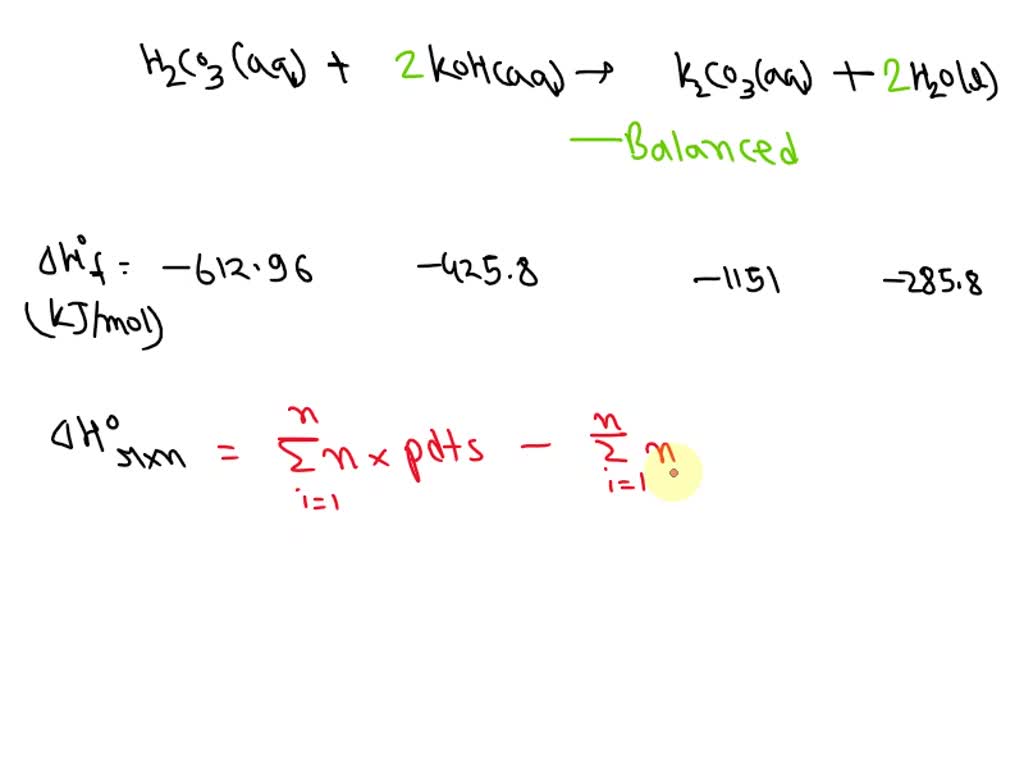 H₂CO₃(aq) + 2KOH(aq) → K₂CO₃(aq) + 2H₂O(l)
— Balanced
ΔH°f = -612.96 -425.8 -1151 -285.8
(kJ/mol)
ΔH°rxn = Σ n × pdts - Σ n
n n
i=1 i=1